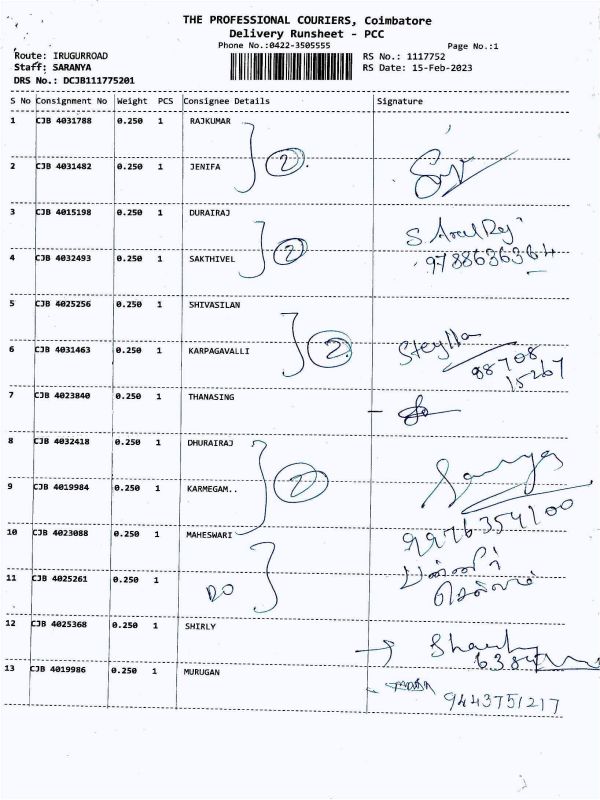 THE PROFESSIONAL COURIERS, Coimbatore
Delivery Runsheet - PCC
Phone No.:0422-3505555 Page No.:1
Route: IRUGURROAD RS No.: 1117752
Staff: SARANYA RS Date: 15-Feb-2023
DRS No.: DCJB111775201
S No Consignment No Weight PCS Consignee Details Signature
1 CJB 4031788 0.250 1 RAJKUMAR
2
2 CJB 4031482 0.250 1 JENIFA
3 CJB 4015198 0.250 1 DURAIRAJ
2 9788636364
4 CJB 4032493 0.250 1 SAKTHIVEL
5 CJB 4025256 0.250 1 SHIVASILAN
2 Steylla
6 CJB 4031463 0.250 1 KARPAGAVALLI
98708
15267
7 CJB 4023840 0.250 1 THANASING
8 CJB 4032418 0.250 1 DHURAIRAJ
2
9 CJB 4019984 0.250 1 KARMEGAM..
9976354100
10 CJB 4023088 0.250 1 MAHESWARI
11 CJB 4025261 0.250 1
DO
12 CJB 4025368 0.250 1 SHIRLY
6384
13 CJB 4019986 0.250 1 MURUGAN
9443751217